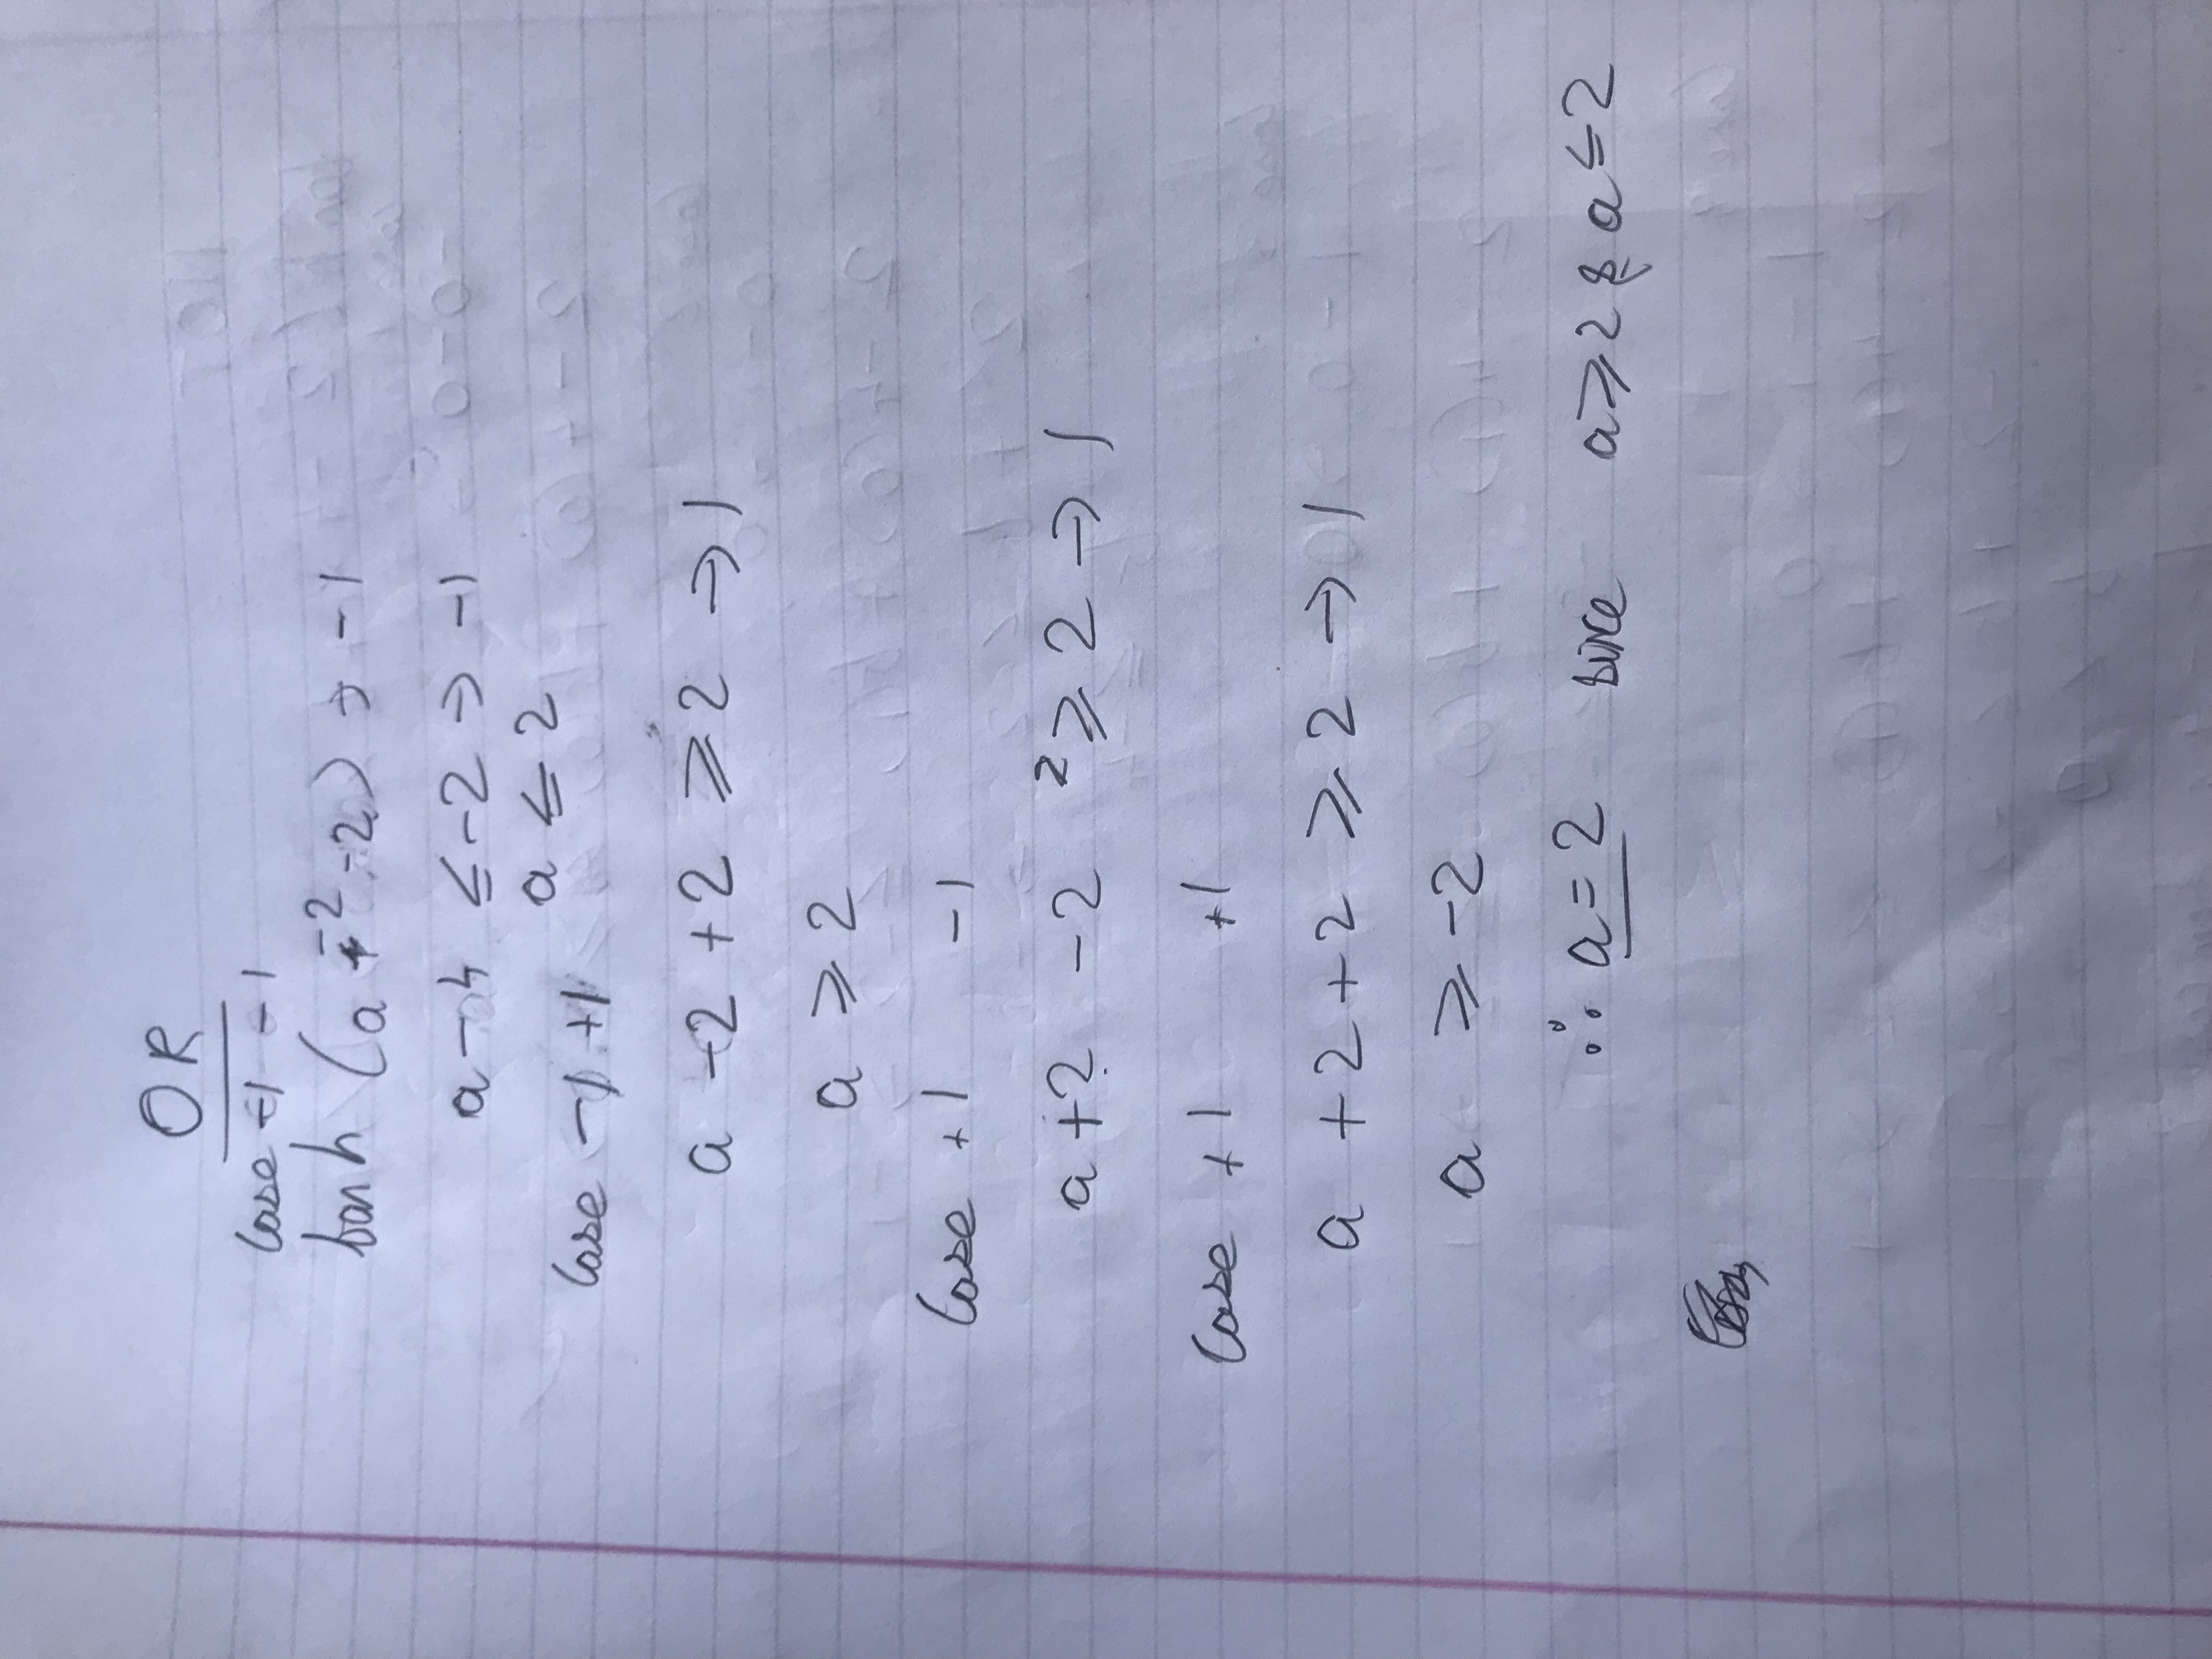 OR
Case -1 -1
tanh (a + -2 -2) → -1
a - 4 ≤ -2 → -1
a ≤ 2
Case -1 +1
a -2 +2 ≥ 2 → 1
a ≥ 2
Case +1 -1
a +2 -2 ≥ 2 → 1
Case +1 +1
a +2 +2 ≥ 2 → 1
a ≥ -2
∴ a = 2 since a ≥ 2 & a ≤ 2